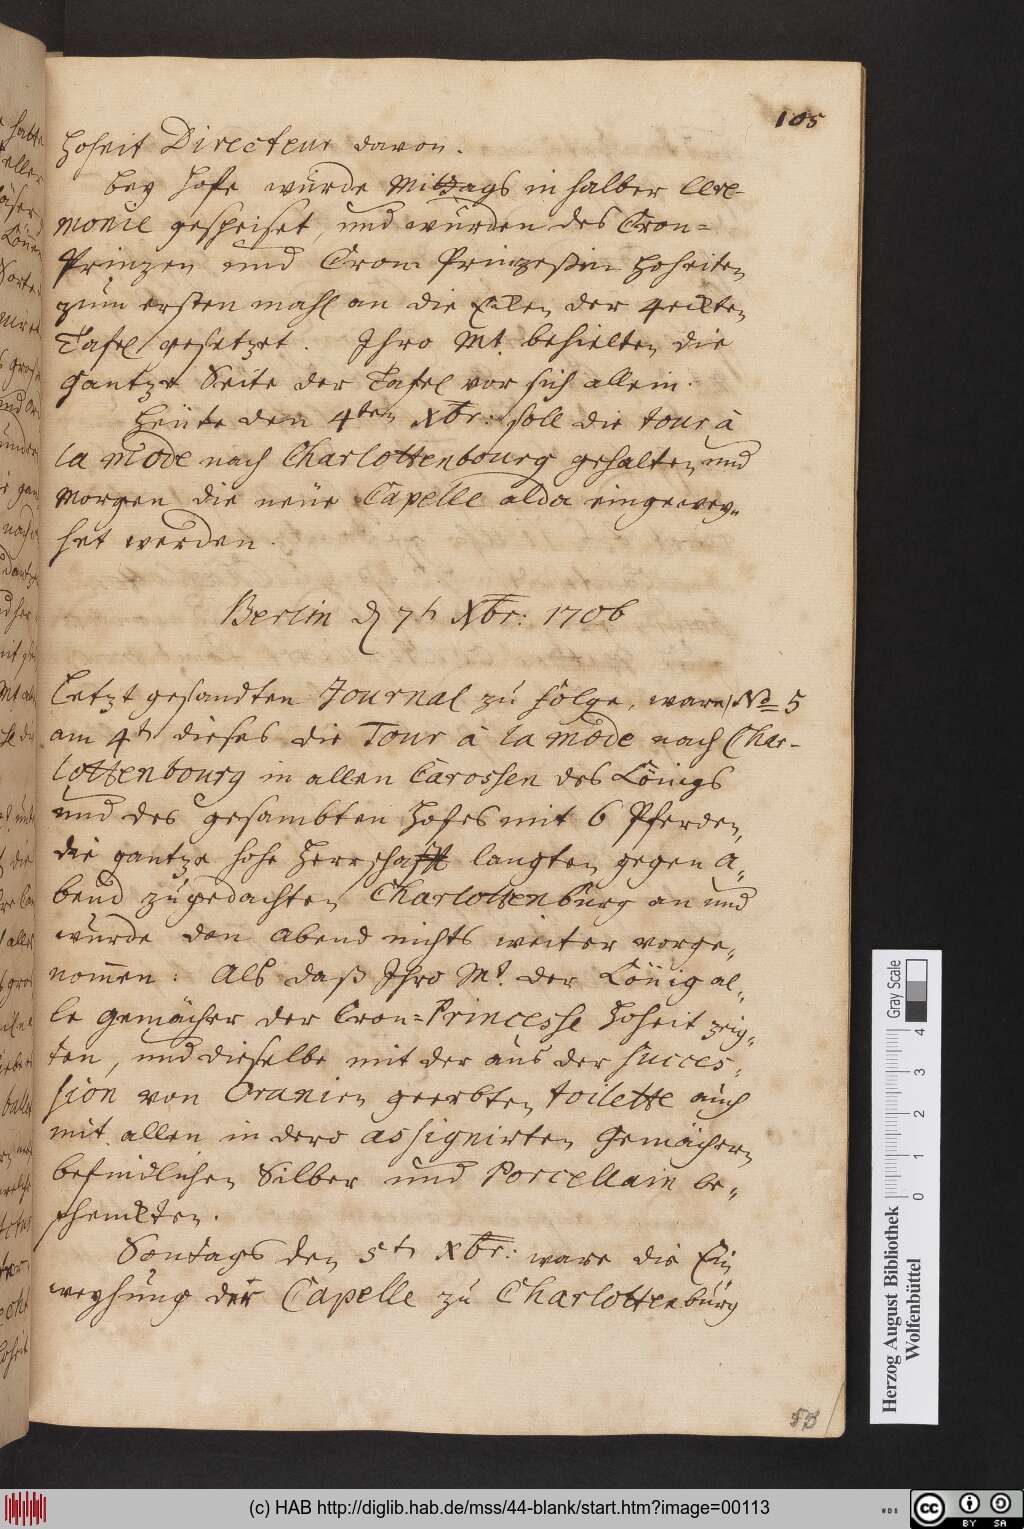 105
Hoheit Directeur davon.
bey Hofe wurde Mittags in halber Cere-
monie gespeiset, und wurden des Cron-
Prinzen und Cron Prinzeßin Hoheiten
zum ersten mahl an die Ecken der 4eckten
Tafel gesetzet. Ihro Mt. behielten die
gantze Seite der Tafel vor sich allein.
Heüte den 4ten Xbr: soll die tour à
la mode nach Charlottenbourg gehalten und
morgen die neüe Capelle alda eingewey-
het werden.
Berlin d 7t Xbr: 1706
Letzt gesandten Journal zu folge, ware No 5
am 4t dieses die Tour à la mode nach Char-
lottenbourg in allen Carossen des Königs
und des gesambten Hofes mit 6 Pferden,
die gantze hohe Herrschafft langten gegen A-
bend zu gedachten Charlottenburg an und
wurde den Abend nichts weiter vorge-
nommen: Als daß Ihro Mt. der König al-
le Gemächer der Cron-Princesse Hoheit zeig-
ten, und dieselbe mit der aus der Succes-
sion von Oranien geerbten toilette auch
mit allen in dero assignirten Gemächern
befindlichen Silber und Porcellain be-
schenckten.
Sontags den 5t Xbr: ware die Ein
weyhung der Capelle zu Charlottenburg
53
Herzog August Bibliothek
Wolfenbüttel
Gray Scale
0 1 2 3 4
(c) HAB http://diglib.hab.de/mss/44-blank/start.htm?image=00113
WDB
cc BY SA